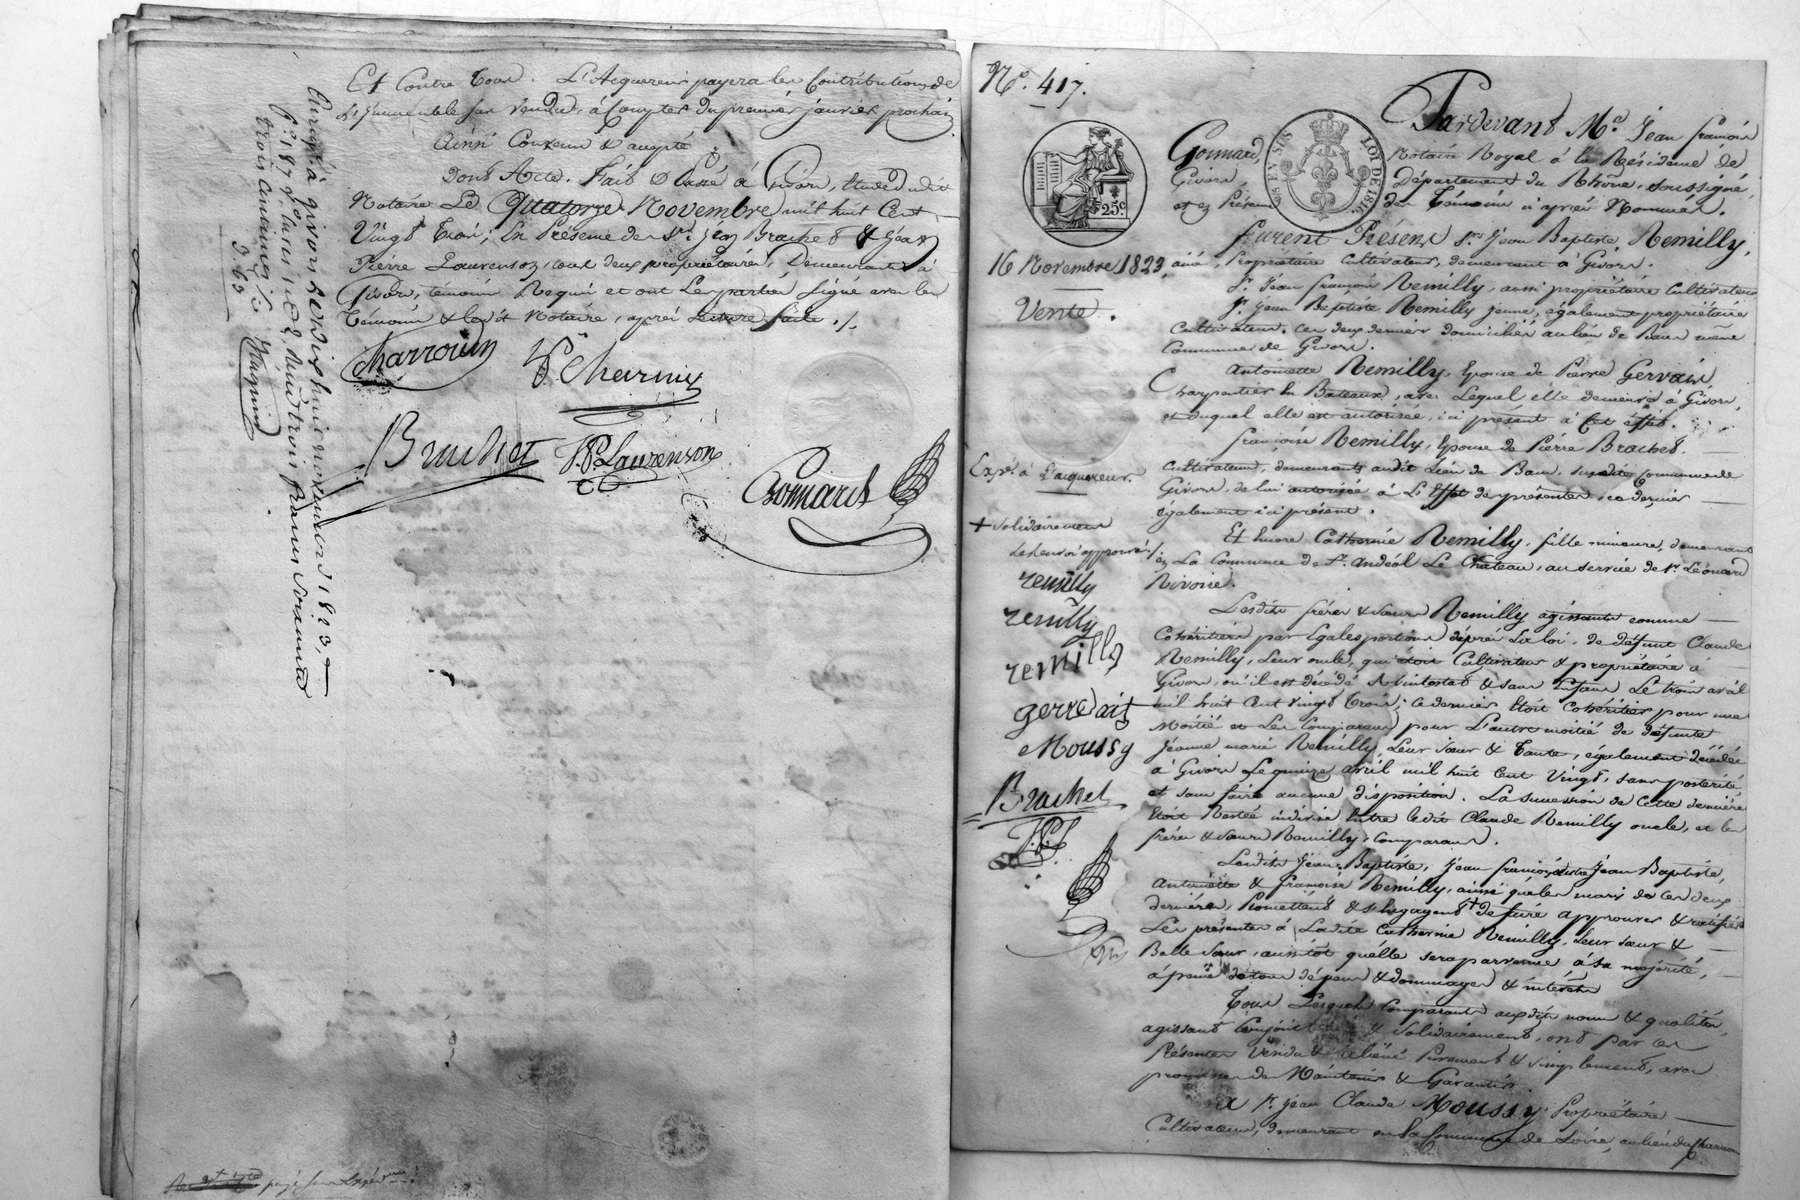 Et Contre Tous. L'Acquereur payera les Contributions de
L'Immeuble sus vendu, à Compter du premier janvier prochain
Ainsi Convenu & accepté
Dont Acte. Fait & Passé à Givors, Etude dudit
Notaire Le Quatorze Novembre mil huit Cent
Vingt Trois, En Présence de Sr. Jean Brachet & Jean
Pierre Laurenson, tous deux propriétaires, Demeurants à
Givors, témoins Requis et ont Les parties Signé avec les
Témoins & ledit Notaire, après Lecture faite ./.
Charrouin
P Charnier
Brachet
J.P. Laurenson
Gonnard
Enregistré à givors Le dix huit novembre 1823,
fo. 187 vo. Cases 1 & 2. Reçu trois francs soixante
trois Centimes
3.63
payé sur
No. 417.
25c
LOI DE 1816
16 Novembre 1823
Vente.
Expé. à L'acquereur.
+ solidairement
Le Renvoi approuvé ./.
remilly
remilly
remilly
gervais
Moussy
Brachet
J.P.L
Pardevant Me. Jean françois
Gonnard Notaire Royal à la Résidence de
Givors Département du Rhône, soussigné,
et en Présence des Témoins ci après Nommés.
furent Présens Srs. Jean Baptiste Remilly,
ainé, Propriétaire Cultivateur, demeurant à Givors.
Sr. Jean françois Remilly, aussi propriétaire Cultivateur
Sr. Jean Baptiste Remilly jeune, également propriétaire
Cultivateur. Ces deux derniers domiciliés au lieu de Bans même
Commune de Givors.
Antoinette Remilly, Epouse de Pierre Gervais,
Charpentier en Bateaux, avec Lequel elle demeure à Givors,
et duquel elle est autorisée, ici présent à Cet effet.
françoise Remilly, Epouse de Pierre Brachet.
Cultivateur, demeurants audit Lieu de Bans, susdite Commune de
Givors, de lui autorisée à L'Effet des présentes, ce dernier
également ici présent.
Et encore Catherine Remilly, fille mineure, demeurant
en La Commune de St. Andéol Le Château, au service de Sr. Léonard
Rivoire.
Lesdits frères & sœurs Remilly agissants comme
Cohéritiers par Egales portions d'après La loi, de défunt Claude
Remilly, Leur oncle, qui étoit Cultivateur & propriétaire à
Givors, où il est décédé Ab intestat & sans Enfans Le trois avril
mil huit Cent vingt Trois; Ce dernier Etoit Cohéritier pour une
Moitié et Les Comparans pour L'autre moitié de défunte
Jeanne marie Remilly, Leur sœur & Tante, également décédée
à Givors Le quinze avril mil huit Cent Vingt, sans postérité
et sans faire aucune disposition. La succession de Cette dernière
Etoit Restée indivise Entre ledit Claude Remilly oncle, et les
frères & sœurs Remilly, Comparans.
Lesdits Jean Baptiste, Jean françois, autre Jean Baptiste,
Antoinette & françoise Remilly, ainsi que les maris de ces deux
dernières Promettent & s'Engagent + de faire approuver & ratifier
Les présentes à Ladite Catherine Remilly, Leur sœur &
Belle Sœur, aussitôt qu'elle sera parvenue à sa majorité,
à peine de tous dépens & dommages & intérêts
Tous Lesquels Comparants auxdits noms & qualités,
agissant Conjointement & solidairement, ont par ces
Présentes Vendu & aliéné Purement & simplement, avec
promesse de Maintenir & Garantir
A Sr. Jean Claude Moussy, Propriétaire
Cultivateur, demeurant en La Commune de Loire, au lieu du